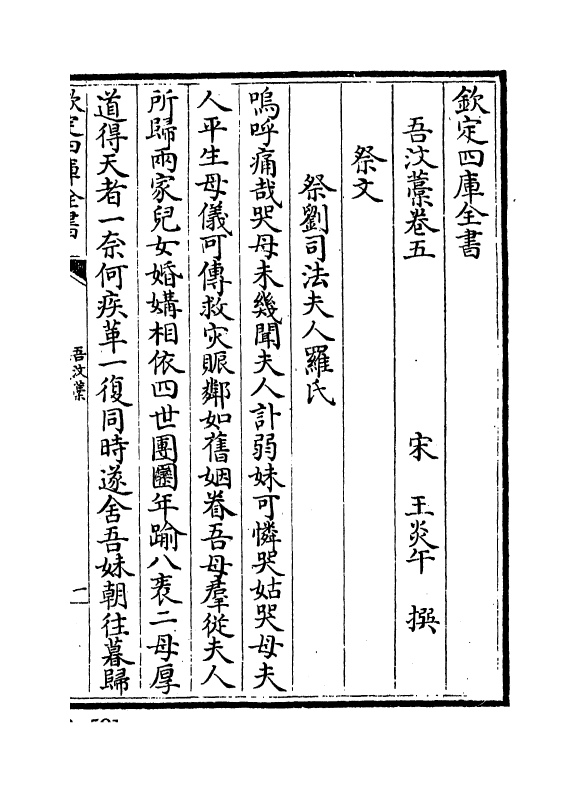 欽定四庫全書
吾汶藁卷五
宋 王炎午 撰
祭文
祭劉司法夫人羅氏
嗚呼痛哉哭母未幾聞夫人訃弱妹可憐哭姑哭母夫
人平生母儀可傳救灾賑鄰如舊姻眷吾母羣從夫人
所歸兩家兒女婚媾相依四世團圞年踰八袠二母厚
道得天者一奈何疾革一復同時遂舍吾妹朝往暮歸
欽定四庫全書
吾汶藁
一